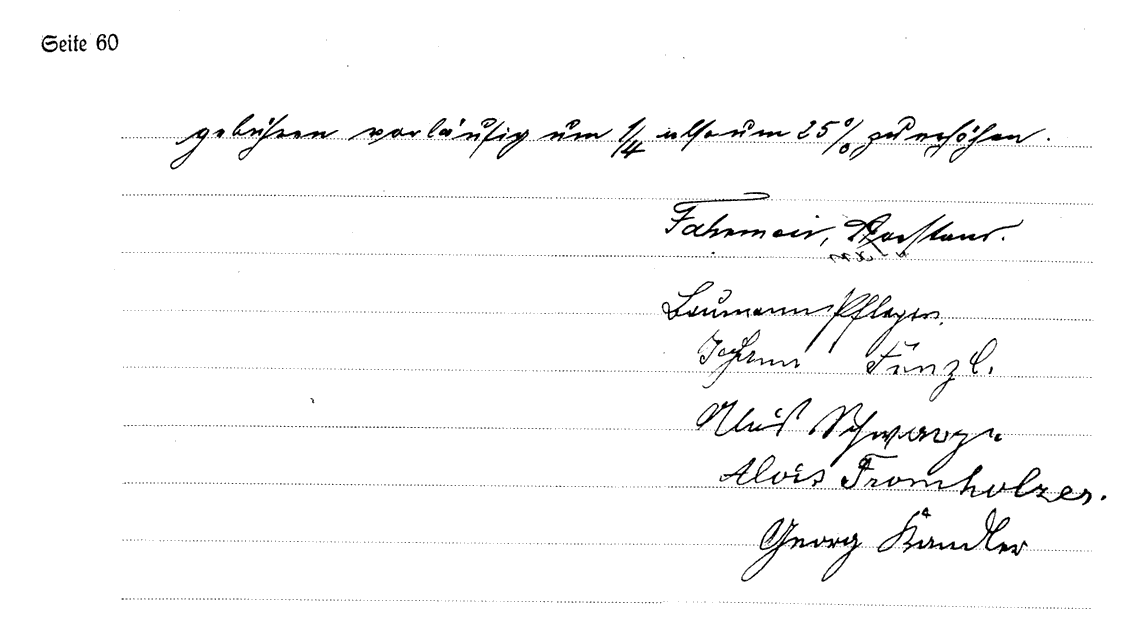 Seite 60
gebühren vorläufig um 1/4 also um 25% zu erhöhen.
Fahrmeir, Vorstand.
Baumann Pfleger.
Johann Fünzl.
Alois Schwarz
Alois Fromholzer.
Georg Kandler